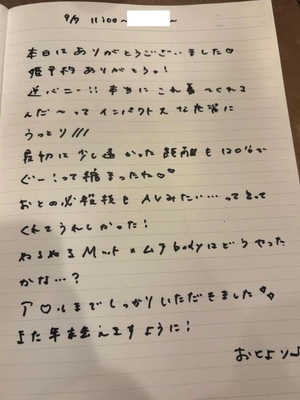 9/7 11:00〜 〜
本日はありがとうございました♡
姫予約ありがとうっ!
逆バニー!! 本当にこれ着てくれる
んだ〜ってインパクト大な衣装に
うっとり///
最初に少し遠かった距離も120%で
ぐーー!って縮まったね♡♡
おとの必殺技もAVみたい…って言って
くれてうれしかった!
ぬるぬるMat × ムチbodyはどうやった
かな…?
ア○ルまでしっかりいただきました
また 会えますように!
おとより♪